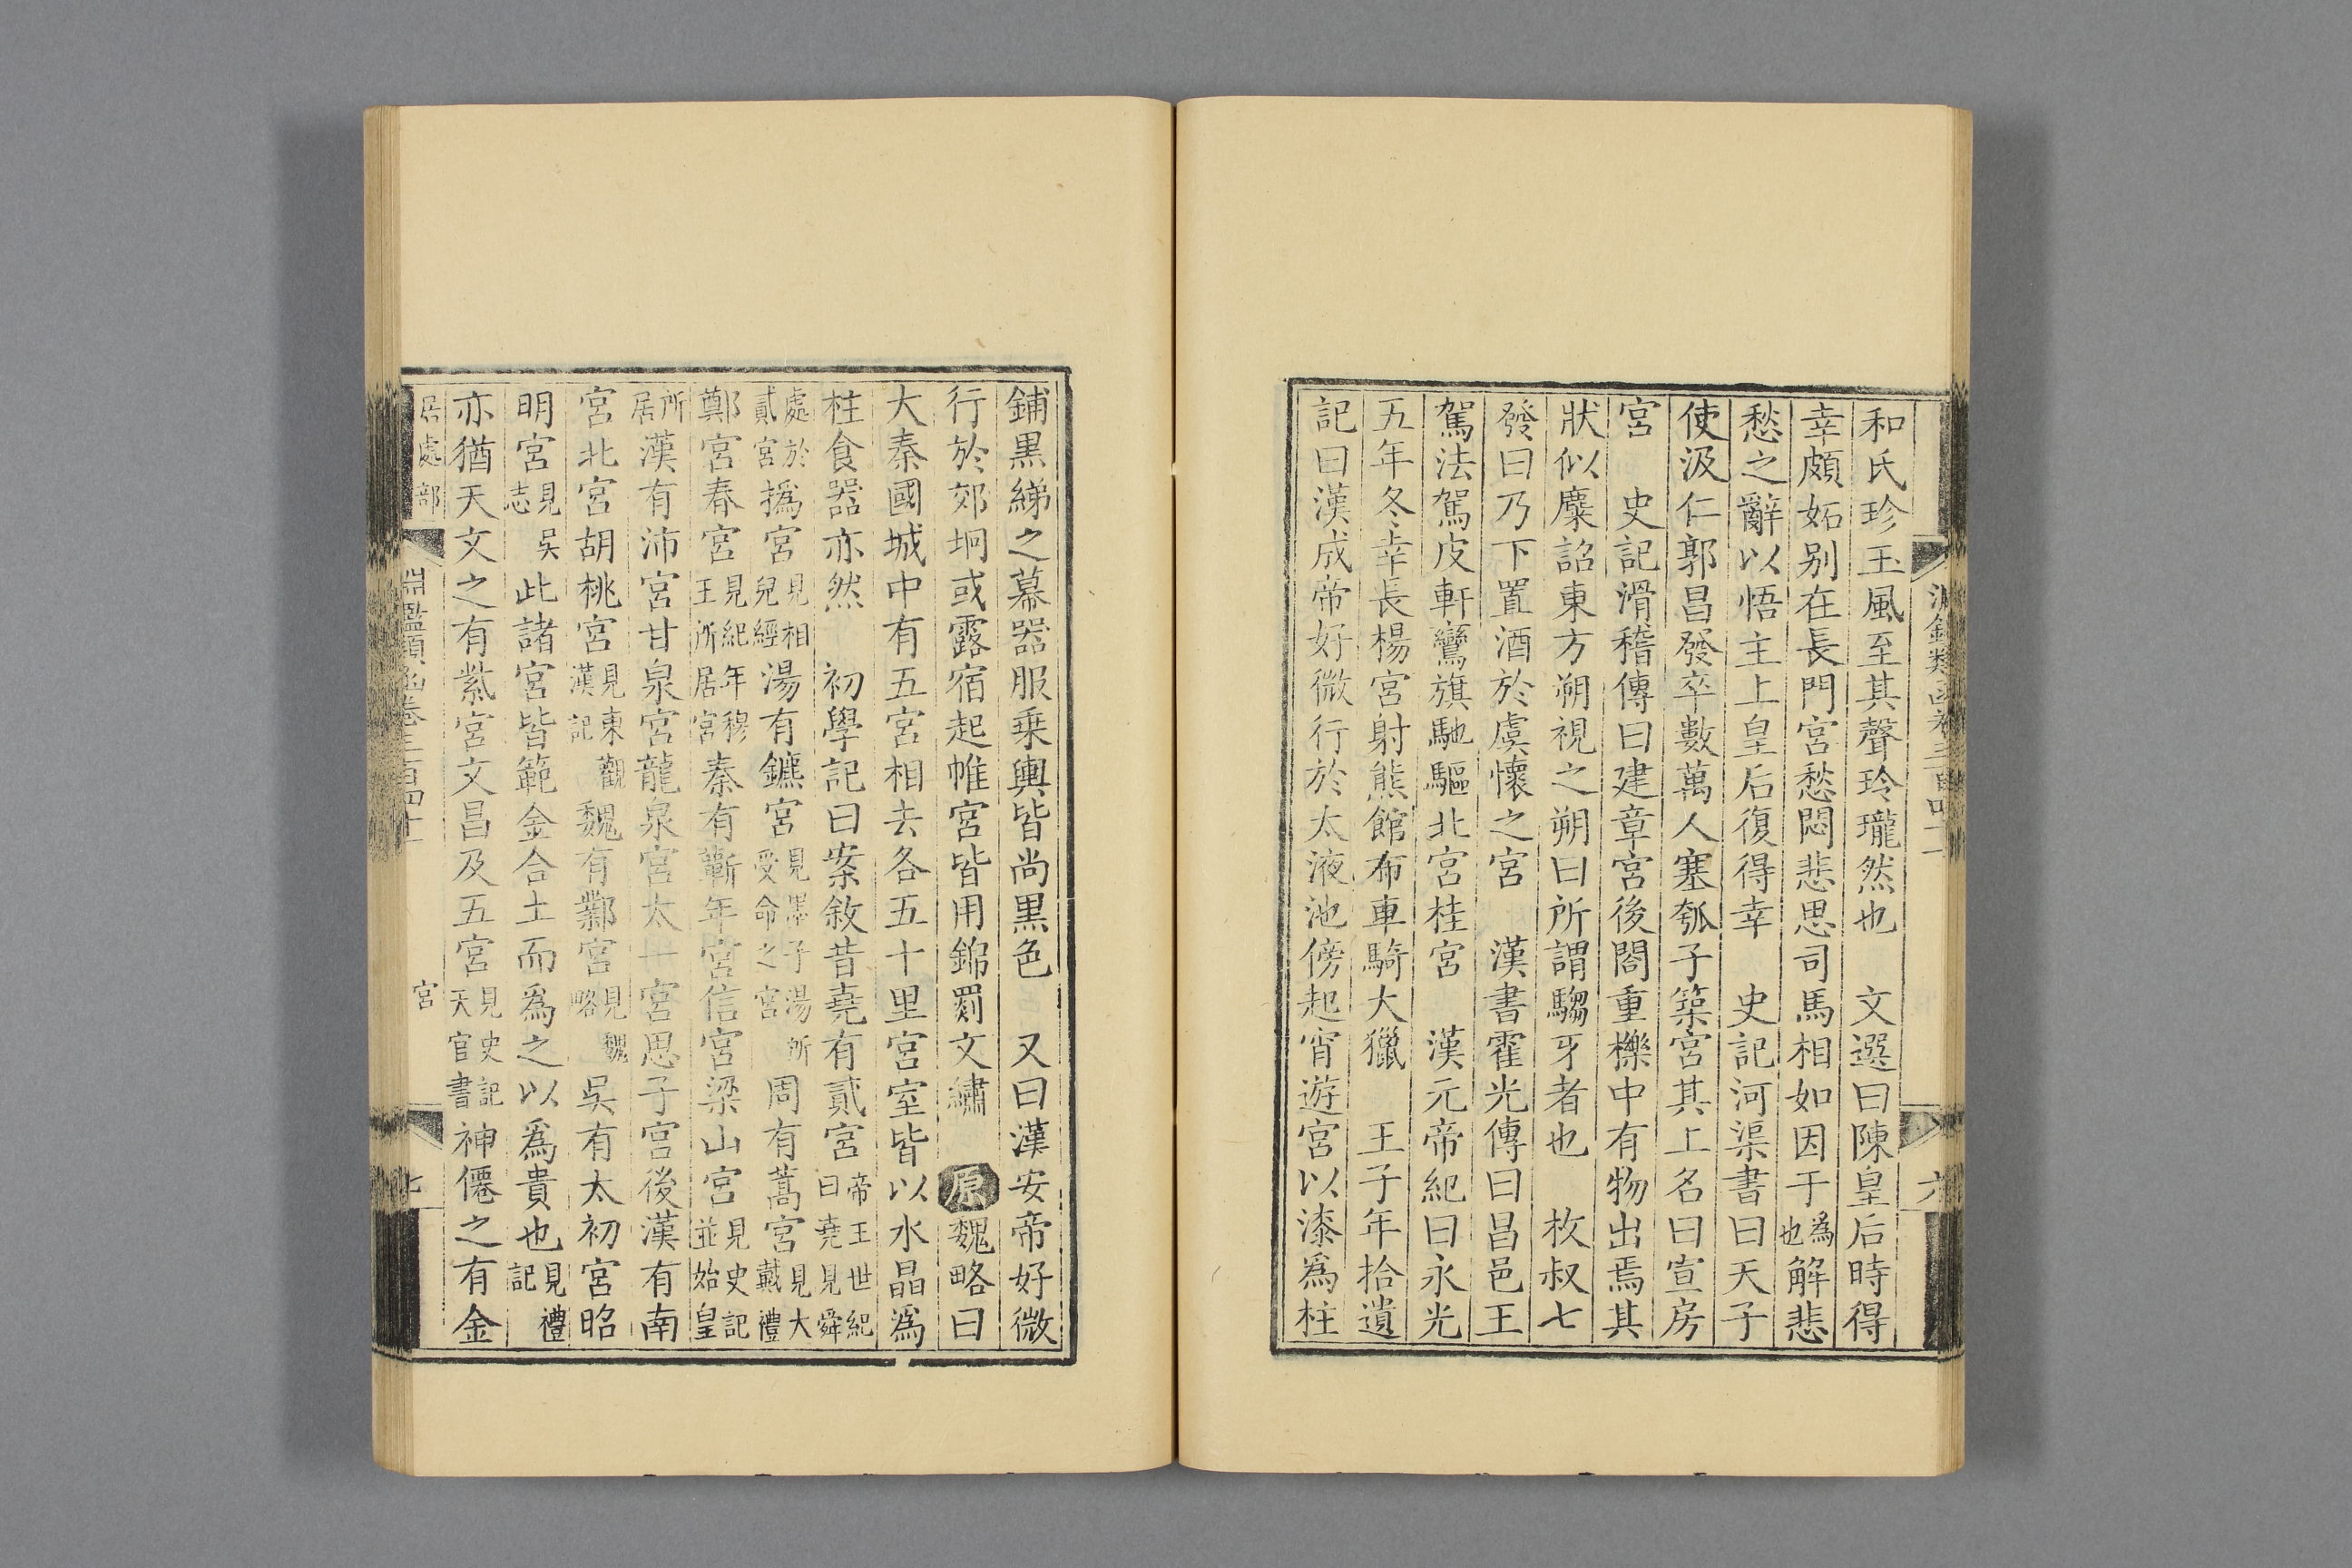 和氏珍玉風至其聲玲瓏然也　文選曰陳皇后時得
幸頗妬别在長門宮愁悶悲思司馬相如因于為也解悲
愁之辭以悟主上皇后復得幸　史記河渠書曰天子
使汲仁郭昌發卒數萬人塞瓠子築宮其上名曰宣房
宮　史記滑稽傳曰建章宮後閤重櫟中有物出焉其
狀似麋詔東方朔視之朔曰所謂騶牙者也　枚叔七
發曰乃下置酒於虞懷之宮　漢書霍光傳曰昌邑王
駕法駕皮軒鸞旗馳驅北宮桂宮　漢元帝紀曰永光
五年冬幸長楊宮射熊館布車騎大獵　王子年拾遺
記曰漢成帝好微行於太液池傍起宵遊宮以漆為柱
鋪黑綈之幕器服乗輿皆尚黑色　又曰漢安帝好微
行於郊坰或露宿起帷宮皆用錦罽文繡　原魏略曰
大秦國城中有五宮相去各五十里宮室皆以水晶為
柱食器亦然　初學記曰案敘昔堯有貳宮帝王世紀曰堯見舜
處於貳宮撝宮見相兒經湯有鑣宮見墨子湯所受命之宮周有蒿宮見大戴禮
鄭宮春宮見紀年穆王所居宮秦有蘄年宮信宮梁山宮見史記並始皇
所居漢有沛宮甘泉宮龍泉宮太一宮思子宮後漢有南
宮北宮胡桃宮見東觀漢記魏有鄴宮見魏略吳有太初宮昭
明宮見吳志此諸宮皆範金合土而為之以為貴也見禮記
亦猶天文之有紫宮文昌及五宮見史記天官書神僊之有金
居處部　淵鑑類函卷三百四十一　宮　七